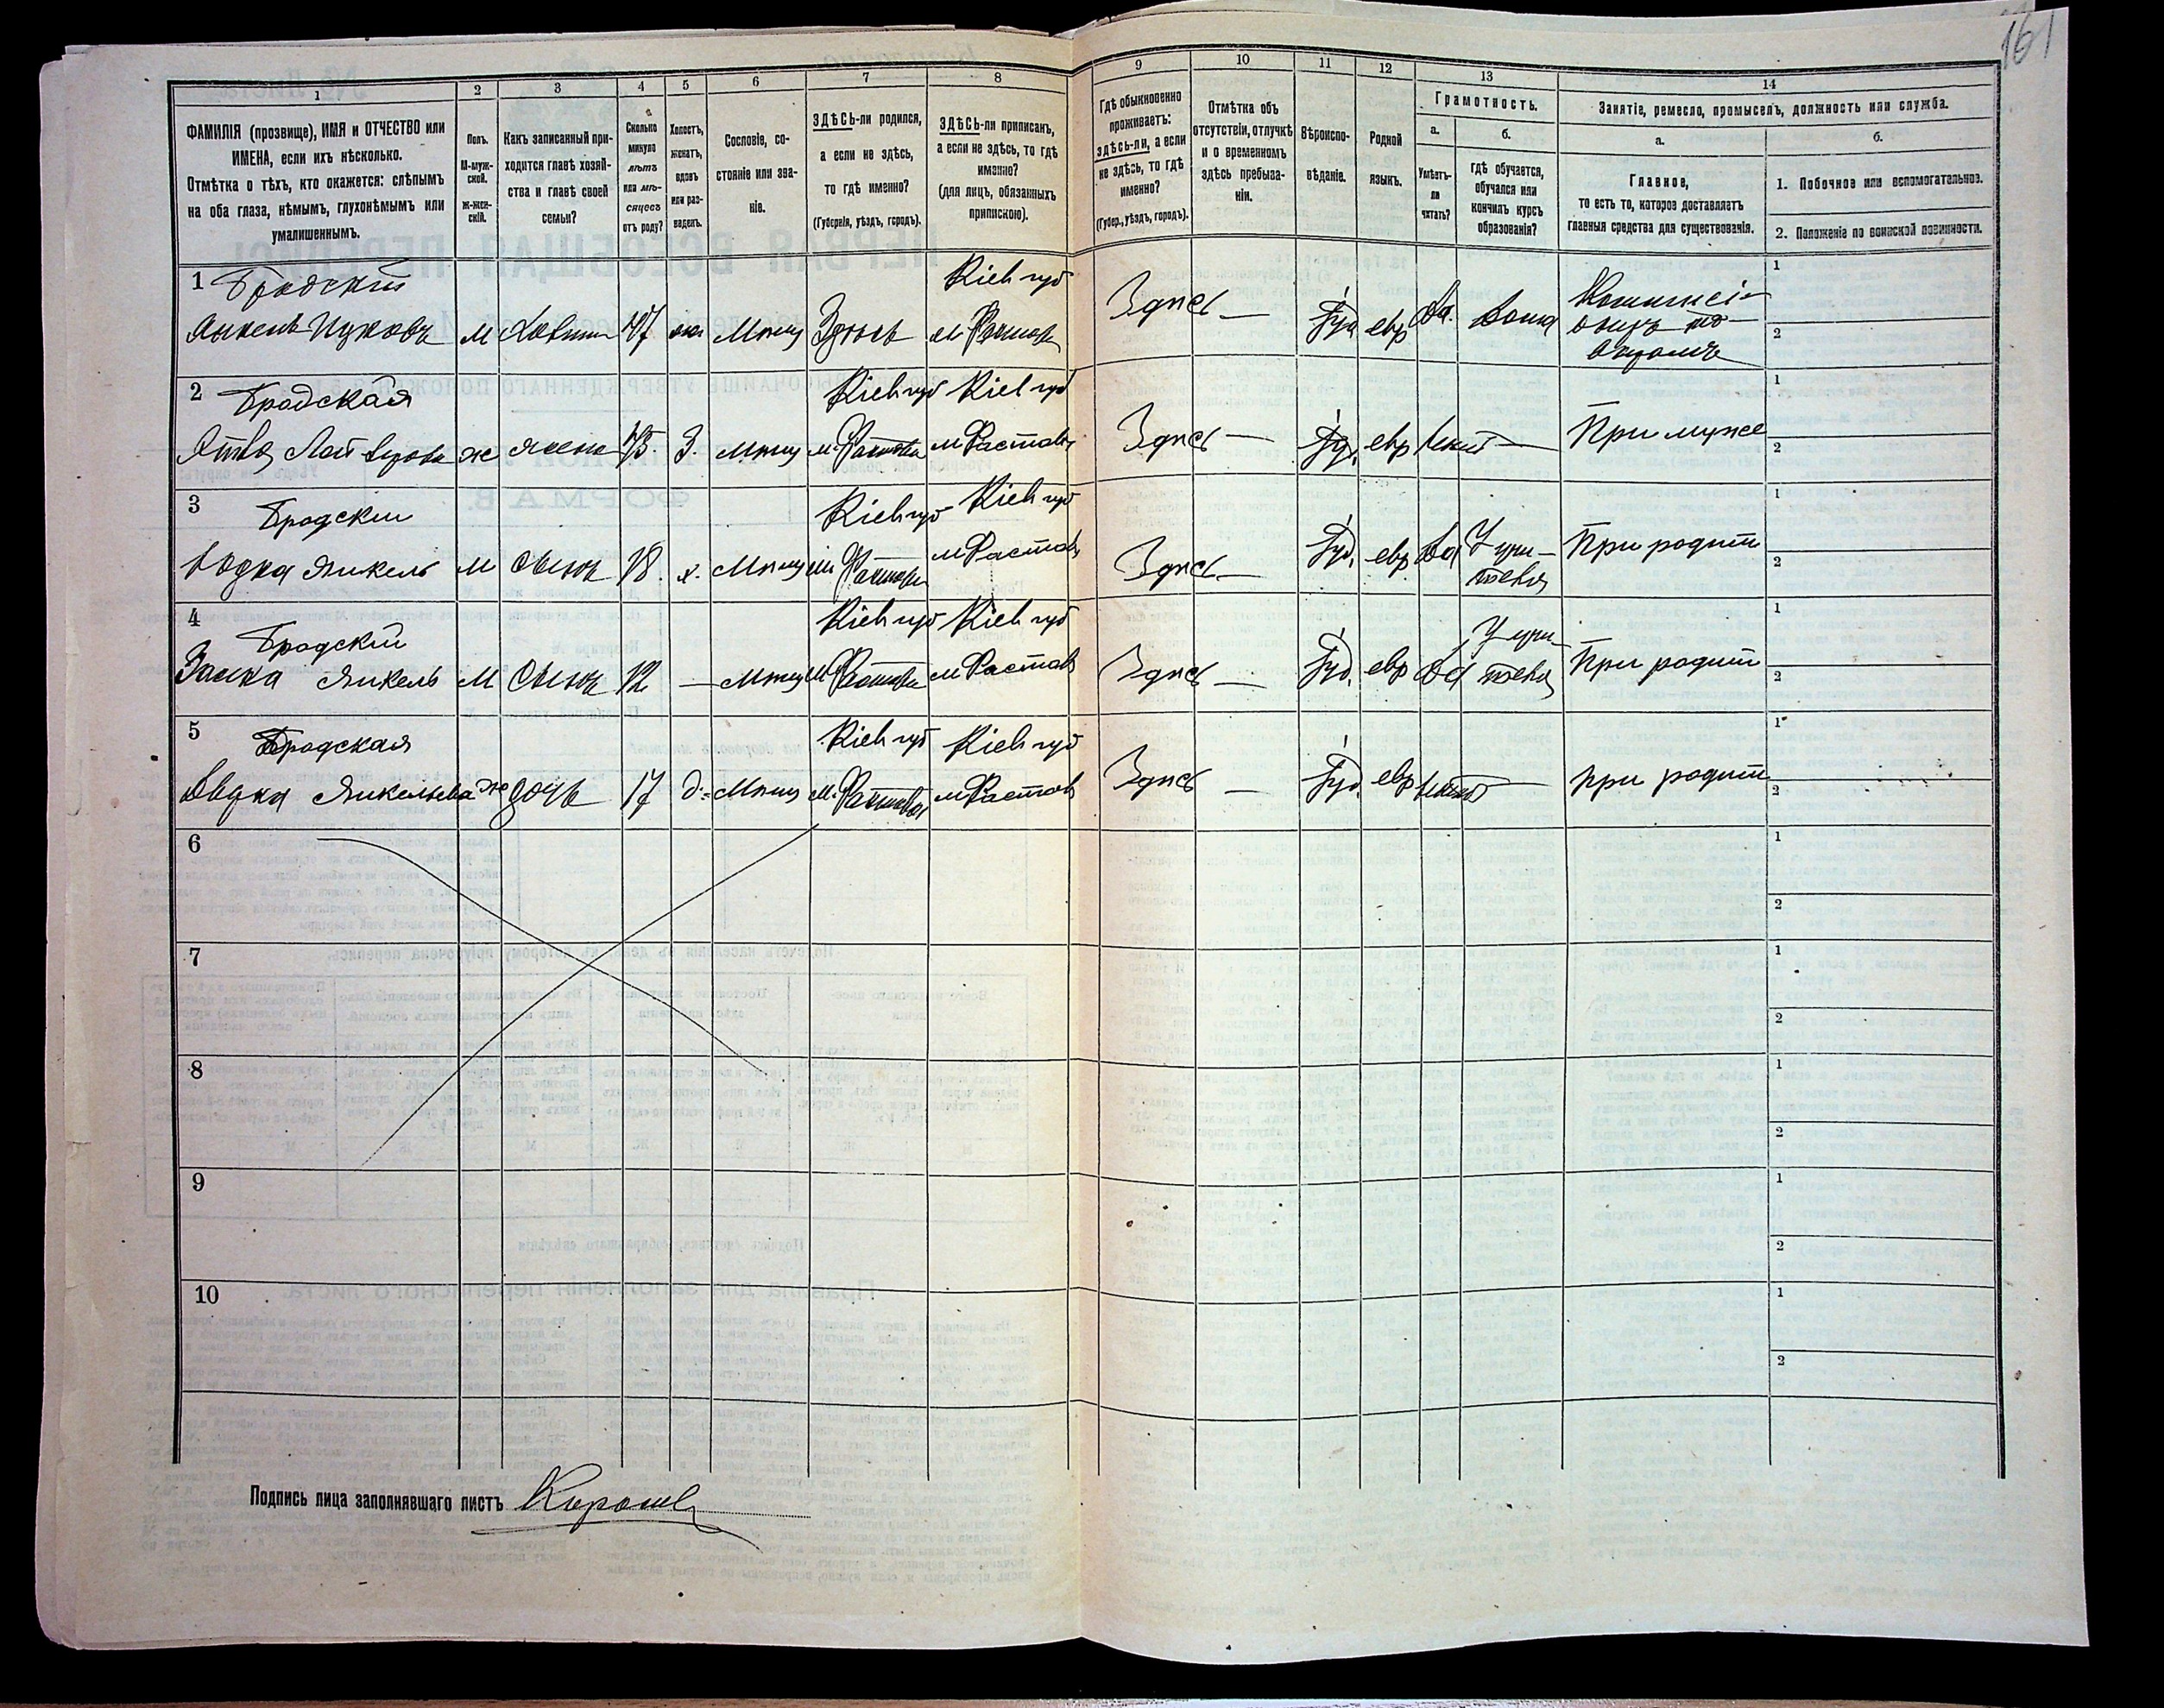 161
1 2 3 4 5 6 7 8 9 10 11 12 13 14
ФАМИЛІЯ (прозвище), ИМЯ и ОТЧЕСТВО или
ИМЕНА, если ихъ нѣсколько.
Отмѣтка о тѣхъ, кто окажется: слѣпымъ
на оба глаза, нѣмымъ, глухонѣмымъ или
умалишеннымъ.
Полъ.
М-муж-
ской.
Ж-жен-
скій.
Какъ записанный при-
ходится главѣ хозяй-
ства и главѣ своей
семьи?
Сколько
минуло
лѣтъ
или мѣ-
сяцевъ
отъ роду?
Холостъ,
женатъ,
вдовъ
или раз-
веденъ.
Сословіе, со-
стояніе или зва-
ніе.
ЗДѢСЬ-ли родился,
а если не здѣсь,
то гдѣ именно?
(Губернія, уѣздъ, городъ).
ЗДѢСЬ-ли приписанъ,
а если не здѣсь, то гдѣ
именно?
(для лицъ, обязанныхъ
припискою).
Гдѣ обыкновенно
проживаетъ:
здѣсь-ли, а если
не здѣсь, то гдѣ
именно?
(Губер., уѣздъ, городъ).
Отмѣтка объ
отсутствіи, отлучкѣ
и о временномъ
здѣсь пребыва-
ніи.
Вѣроиспо-
вѣданіе.
Родной
языкъ.
Грамотность.
а.
Умѣетъ-
ли
читать?
б.
гдѣ обучается,
обучался или
кончилъ курсъ
образованія?
Занятіе, ремесло, промыселъ, должность или служба.
а.
Главное,
то есть то, которое доставляетъ
главныя средства для существованія.
б.
1. Побочное или вспомогательное.
2. Положеніе по воинской повинности.
1 Бродскій Кіев губ
м 47 Мѣщ Здѣсь м Фастовъ Здѣсь — Іуд евр Да. Дома
1
2
2 Бродская Кіев губ Кіев губ
ж жена 45. З. Мѣщ м. Фастовъ м Фастовъ Здѣсь — Іуд. евр При муже
1
2
3 Бродскій Кіев губ Кіев губ
Янкель м сынъ 18. х. Мѣщ м Фастовъ м Фастовъ Здѣсь — Іуд. евр Да У учи-
теля При родит
1
2
4 Бродскій Кіев губ Кіев губ
Янкель м сынъ 12 — Мѣщ м Фастовъ м Фастовъ Здѣсь — Іуд. евр Да У учи-
теля При родит
1
2
5 Бродская Кіев губ Кіев губ
Янкельева ж дочь 17 д. Мѣщ м. Фастовъ м Фастовъ Здѣсь — Іуд. евр При родит
1
2
6
1
2
7
1
2
8
1
2
9
1
2
10
1
2
Подпись лица заполнявшаго листъ